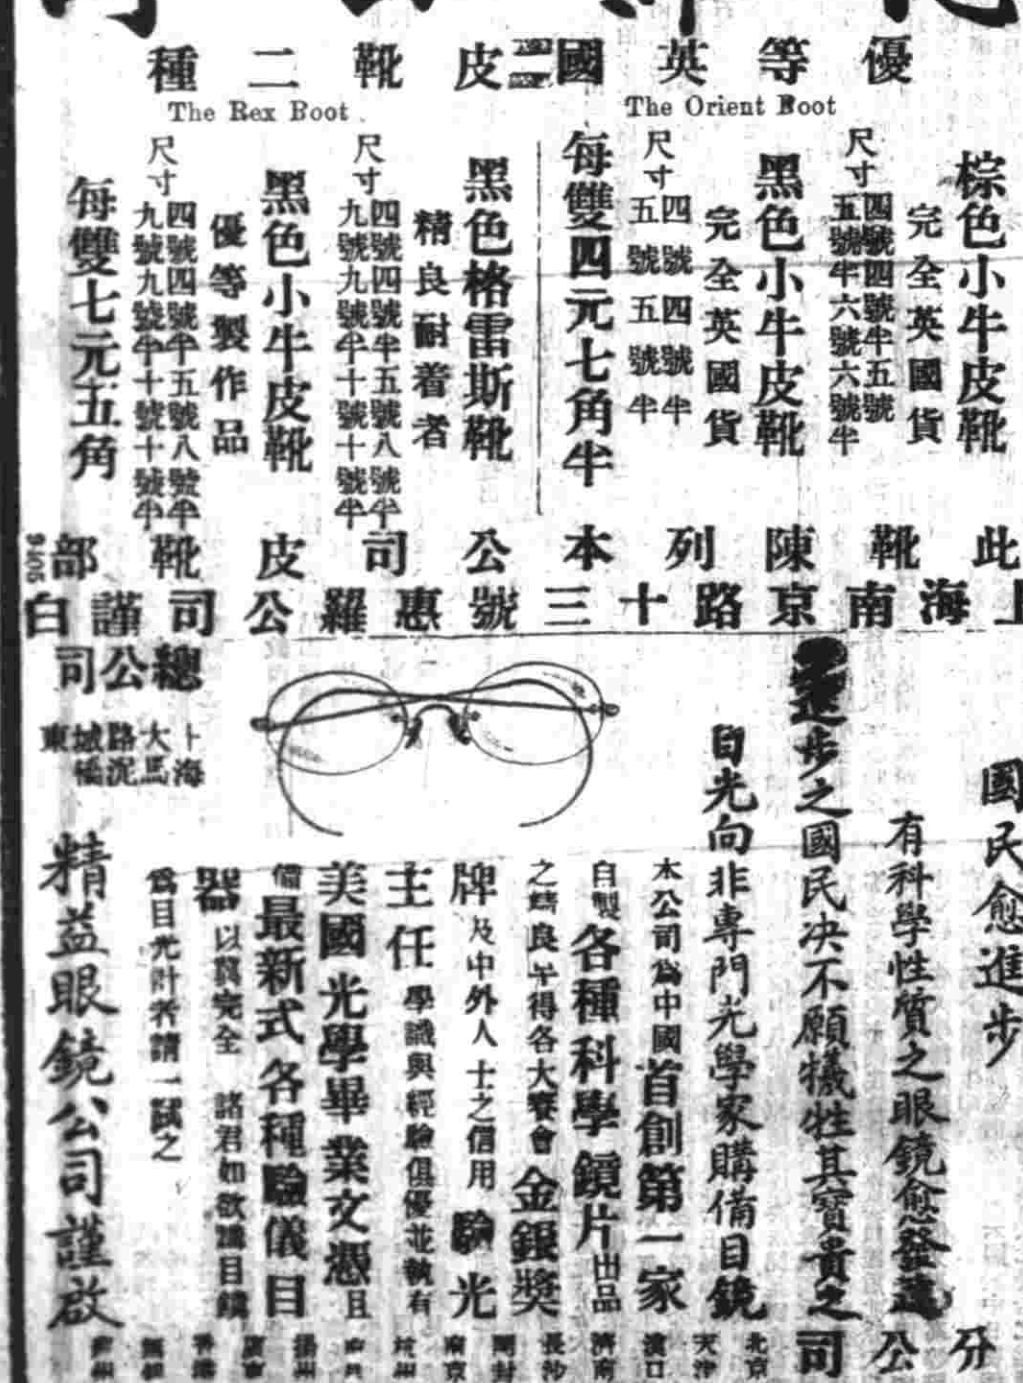 優等英國皮靴二種
The Orient Boot
棕色小牛皮靴
完全英國貨
尺寸
四號四號半五號
五號半六號六號半
黑色小牛皮靴
完全英國貨
尺寸
四號四號半
五號五號半
每雙四元七角半
The Rex Boot
黑色格雷斯靴
精良耐着者
尺寸
四號四號半五號八號半
九號九號半十號十號半
黑色小牛皮靴
優等製作品
尺寸
四號四號半五號八號半
九號九號半十號十號半
每雙七元五角
此靴陳列本公司皮靴部
上海南京路十三號惠羅公司謹白
國民愈進步
有科學性質之眼鏡愈發達
進步之國民决不願犧牲其寶貴之
目光向非專門光學家購備目鏡
本公司為中國首創第一家
自製各種科學鏡片出品
之精良早得各大賽會金銀獎
牌及中外人士之信用驗光
主任學識與經驗俱優並執有
美國光學畢業文憑且
備最新式各種驗儀目
器以冀完全 諸君如欲購目鏡
為目光計者請一試之
總公司
上海大馬路泥城橋東
精益眼鏡公司謹啟
分公司
北京
天津
漢口
濟南
長沙
開封
南京
杭州
揚州
香港
無錫